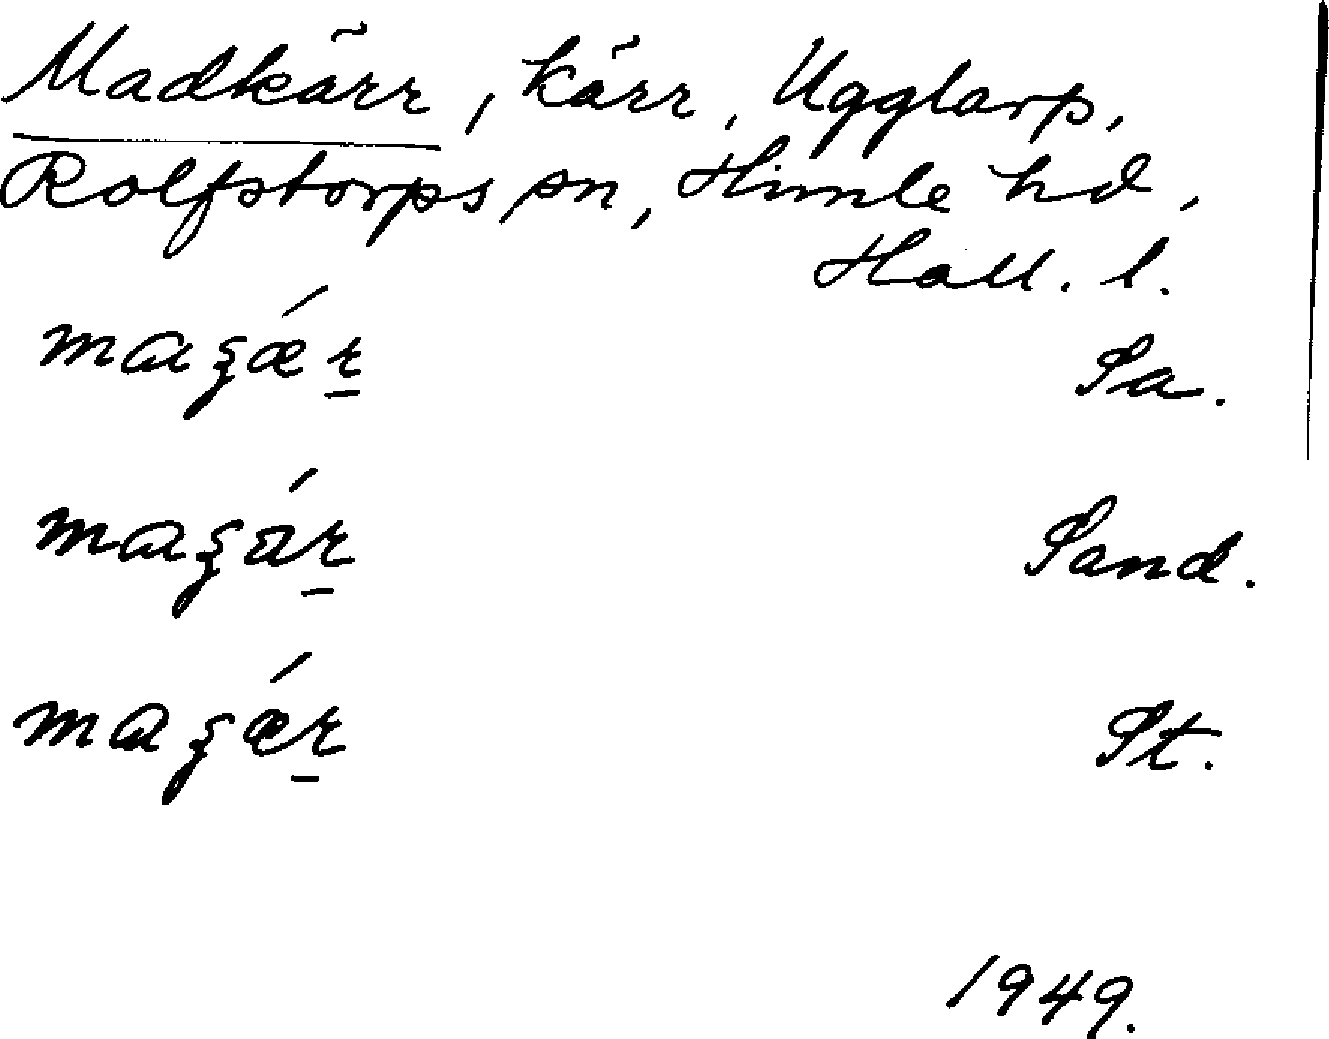 Madkärr, kärr, Ugglarp,
Rolfstorps sn, Himle hd,
Hall. l.
maʒǽr̲ Sa.
maʒár̲ Sand.
maʒǽr̲ St.
1949.